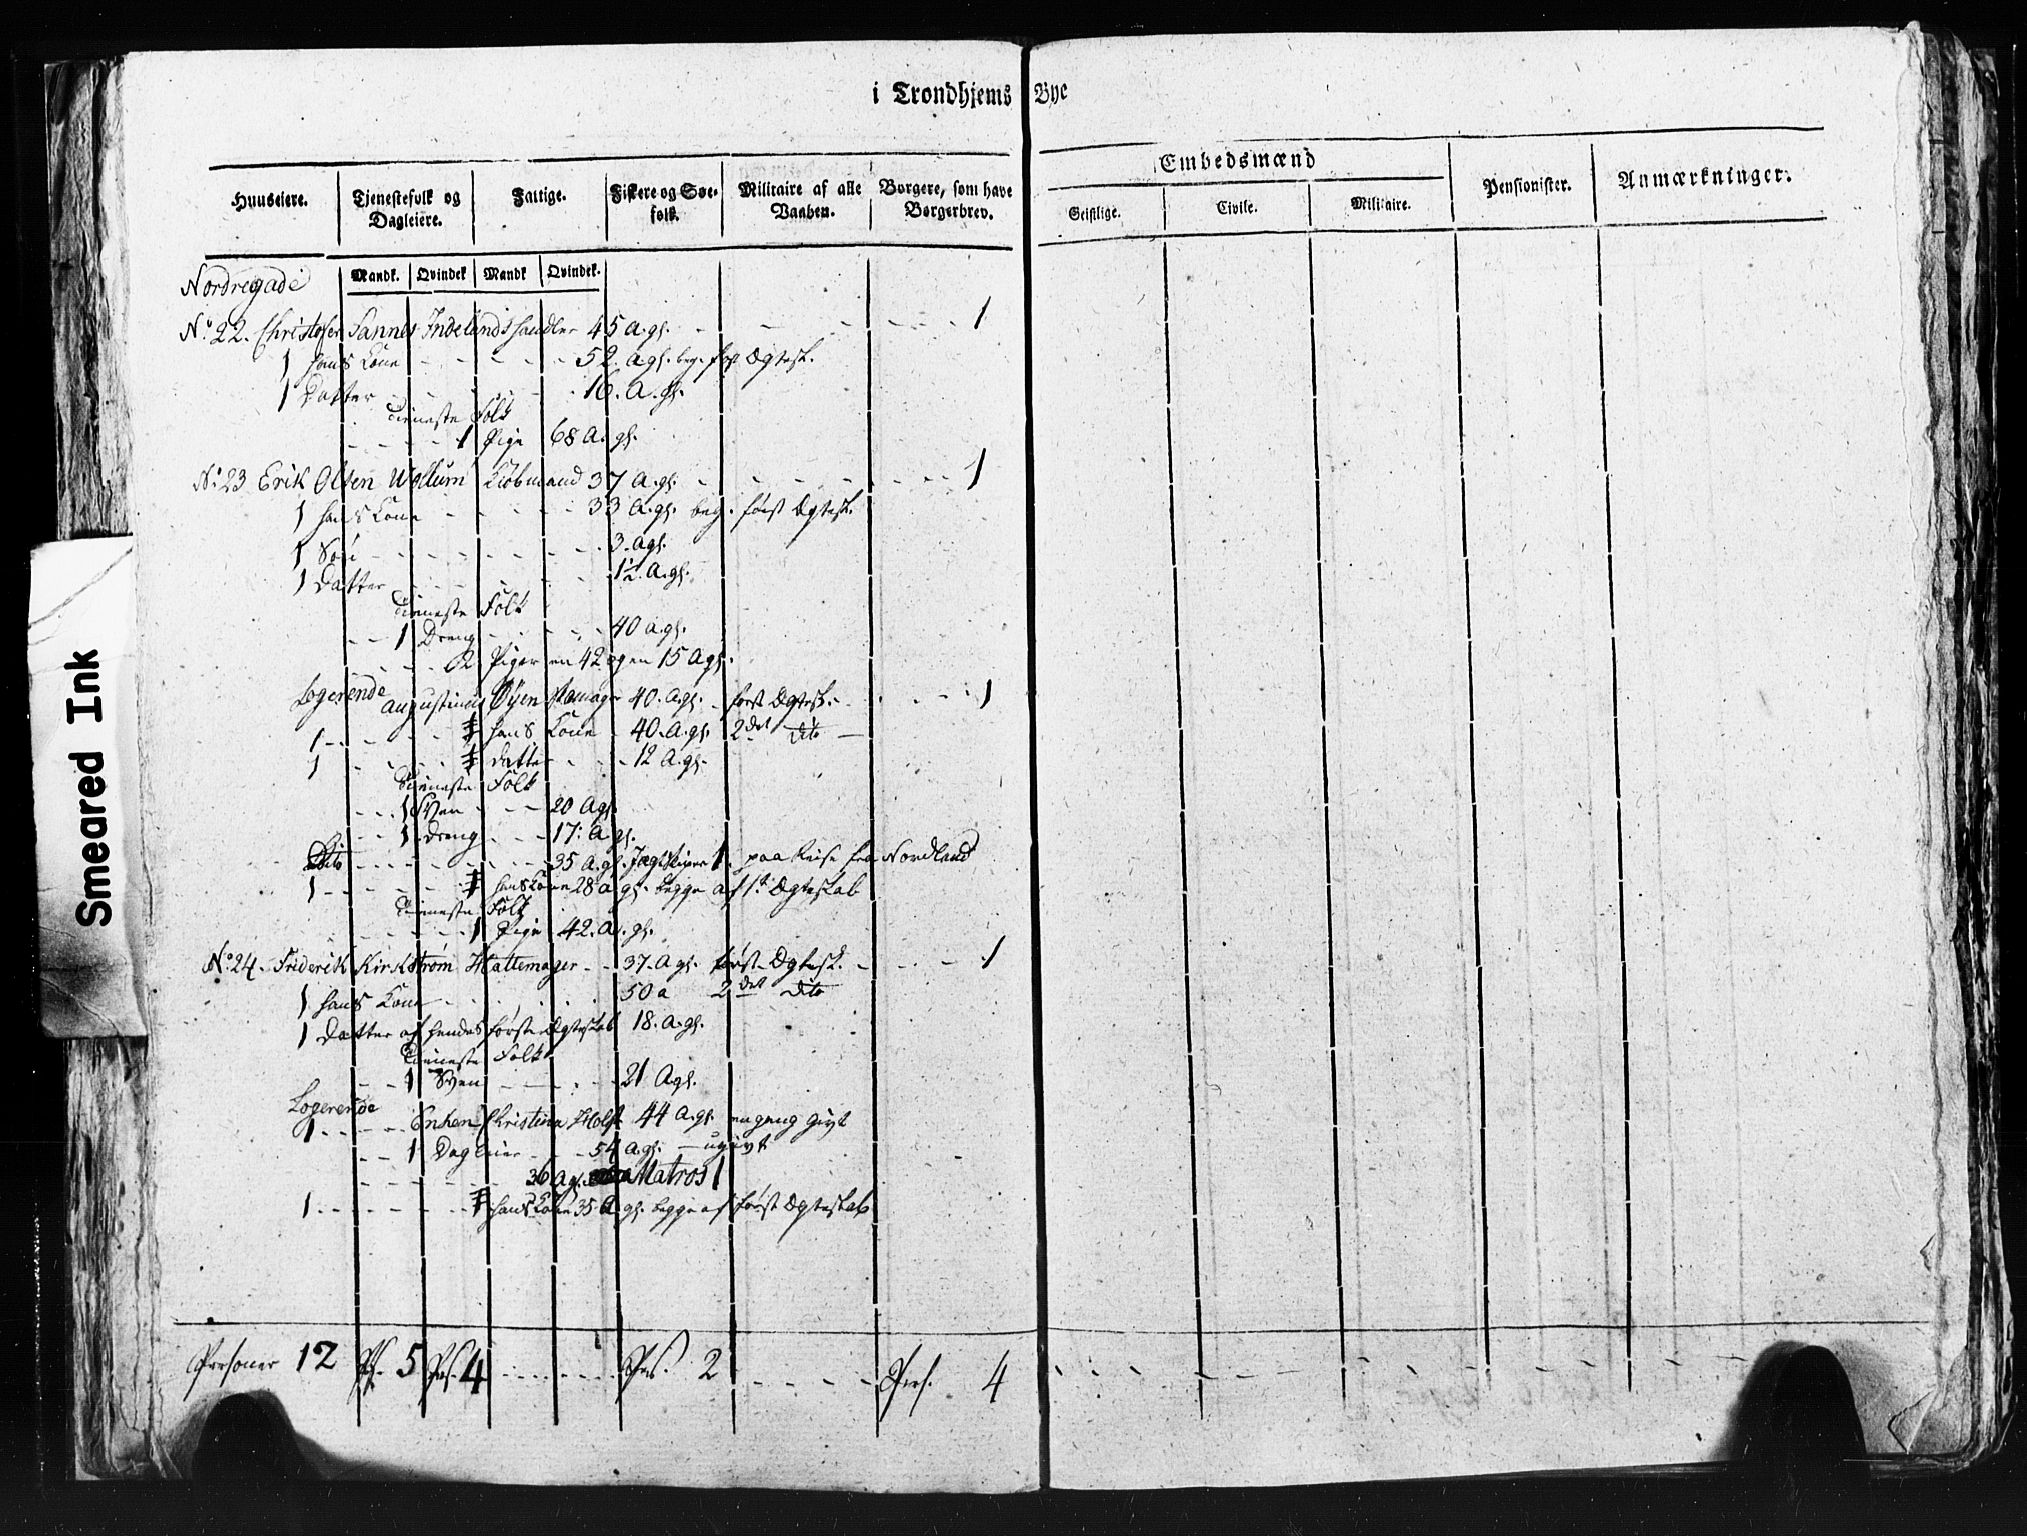 i Trondhjems Bye
Huuseiere. Tjenestefolk og Dagleiere. Fattige. Fiskere og Søe-folk. Militaire af alle Vaaben. Borgere, som have Borgerbrev. Embedsmænd Pensionister. Anmærkninger.
Geistlige. Civile. Militaire.
Mandk. Qvindek Mandk Qvindek.
Nordregade
No. 22. Christofer Sannes Indelands handler 45 A. gl. - - - - - 1
1 hans Kone - - - - - 52. A gl. beg. først Ægtesk.
1 Datter - - - - 16. A. gl.
Tieneste Folk
- - - - 1 Pige 68 A. gl.
No. 23 Erik Olsen Wollum Kiøbmand 37 A. gl. - - - - - 1
1 hans Kone - - - - - 33 A. gl. beg. først Ægtesk.
1 Søn - - - - - - - 3. A gl.
1 Datter - - - - - - 1½. A. gl.
Tieneste Folk
- - 1 Dreng - - - - 40 A. gl.
- - - - 2 Piger en 42 og en 15 A gl.
Logerende Augustinus Øyen 40. A. gl. - først Ægtesk. - - - 1
1 - - - - - hans Kone - 40. A. gl. 2det dito -
1 - - - - datter - - - 12 A. gl.
Tieneste Folk
- - - 1 Sven - - - 20 A gl.
- - 1 dreng - - - 17. A gl.
Dito - - - - - - - - 35 A. gl. Jægt 1. paa Reise fra Nordland
1 - - - - - hans Kone 28 A gl. begge af 1st Ægteskab
Tieneste Folk
- - - - - 1 Pige 42. A. gl.
No. 24. Friderik Kirkstrøm Hattemager - - 37. A gl. først Ægtesk. - - - 1
1 hans Kone - - - - - 50 a 2det dito
1 Datter af hendes første Ægteskab 18. A. gl.
Tieneste Folk
- - 1 Sven - - - - 21 A gl.
Logerende
1 - - - - - Enken Christina Holst 44 A. gl. engang givt
- - 1 Dagleier - - - 54 A. gl. - ugivt
- - - - - - 36 A gl. Matros 1
1 - - - - - - hans Kone 35. A. gl. begge af først Ægteskab
Personer 12 Ps. 5 Ps. 4 - - - - - - Ps. 2 - - - - - Pers. 4
Smeared Ink